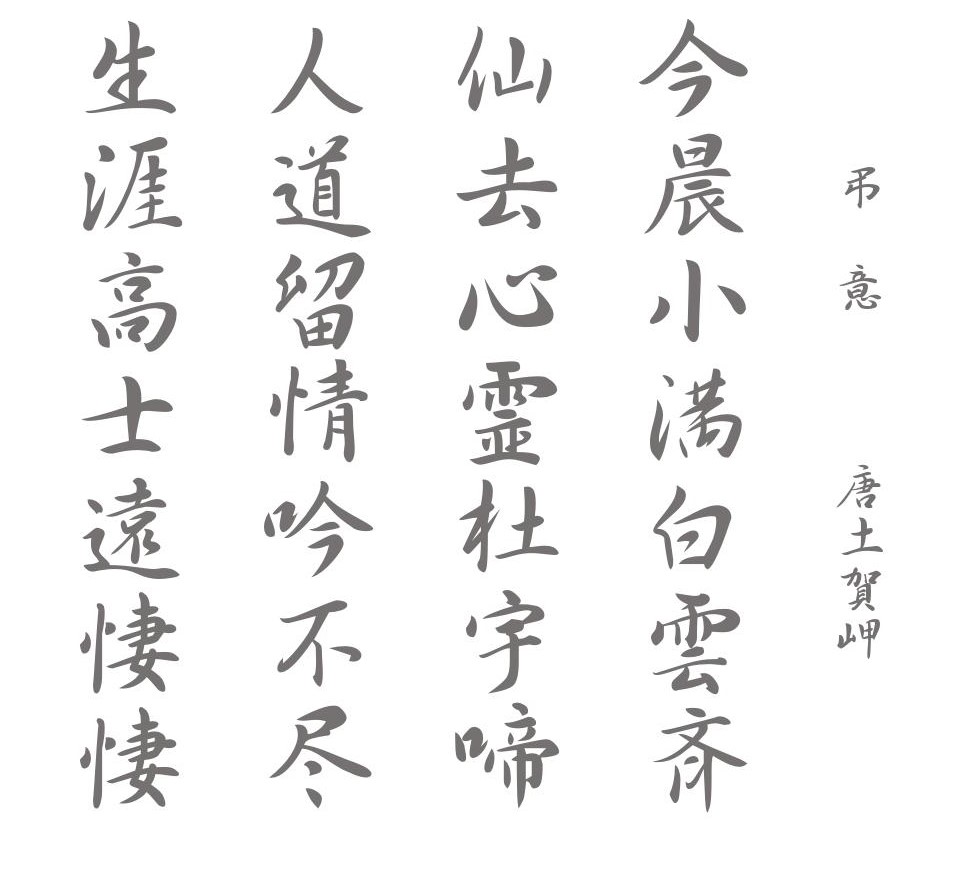 弔意　唐土賀岬
今晨小満白雲斉
仙去心霊杜宇啼
人道留情吟不尽
生涯高士遠悽悽